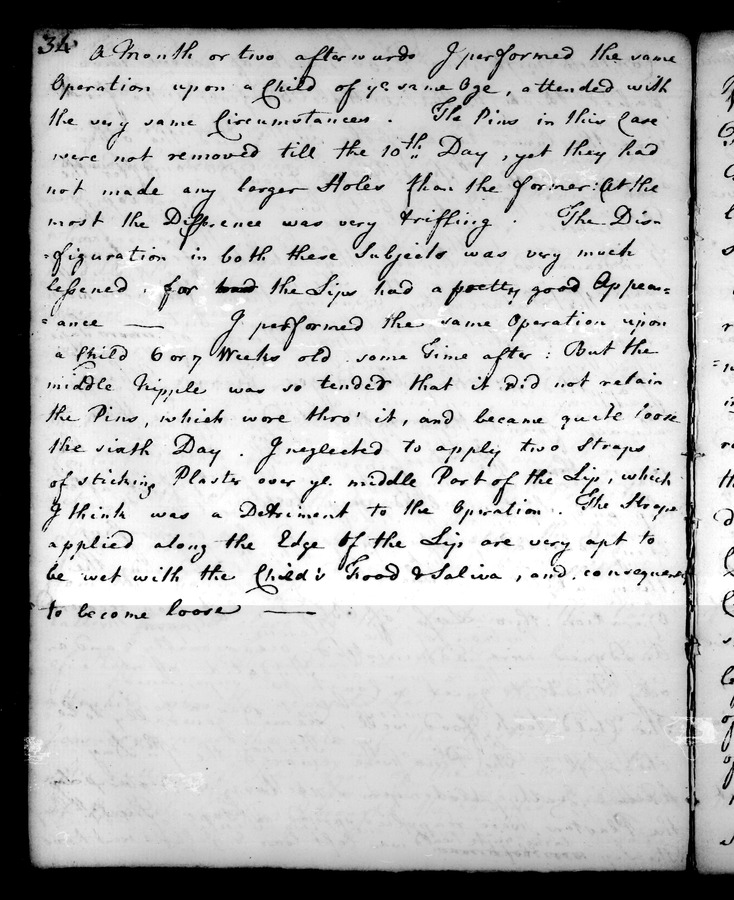 34
A Month or two afterwards I performed the same
Operation upon a Child of ye same Age, attended with
the very same Circumstances. The Pins in this Case
were not removed till the 10th Day, yet they had
not made any larger Holes than the former: At the
most the Diffrence was very triffling. The Dis-
-figuration in both these Subjects was very much
lessened, for the Lips had a pretty good Appea=
=ance — I performed the same Operation upon
a Child 6 or 7 Weeks old some Time after: But the
middle Nipple was so tender that it did not retain
the Pins, which wore thro' it, and became quite loose
the sixth Day. I neglected to apply two Straps
of sticking Plaster over ye middle Part of the Lip, which
I think was a Detriment to the Opiration. The Straps
applied along the Edge of the Lip are very apt to
be wet with the Child's Food & Saliva, and consequen
to become loose —